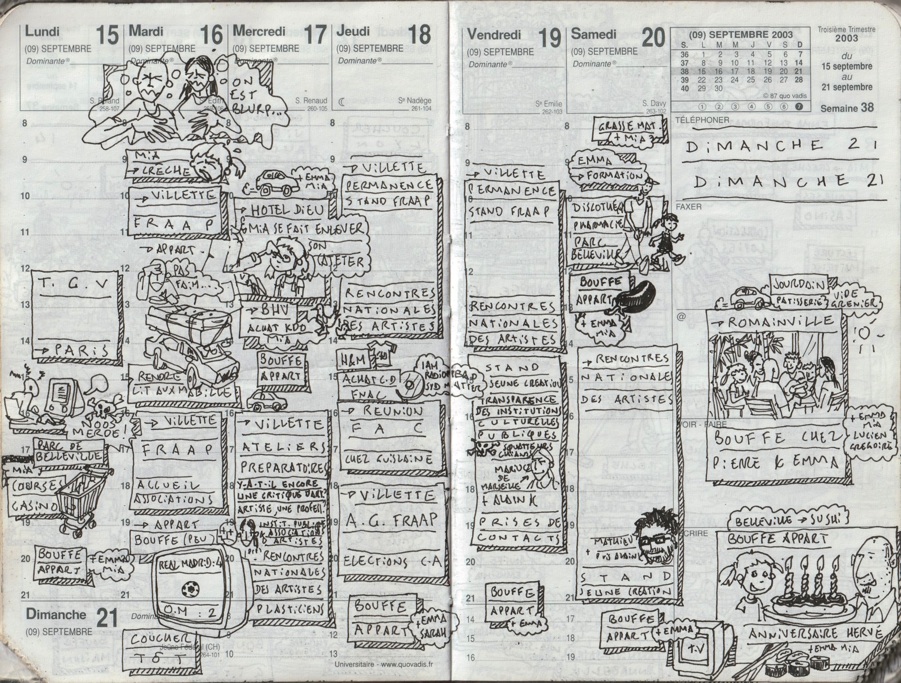 Lundi 15
(09) SEPTEMBRE
Dominante
T.G.V
→ PARIS
NOOS
MERDE!
PARC DE
BELLEVILLE
MIA
COURSES
CASINO
BOUFFE
APPART
+ EMMA
MIA
Mardi 16
(09) SEPTEMBRE
Dominante
ON
EST
BLURP...
MIA
→ CRECHE
→ VILLETTE
FRAAP
→ APPART
PAS
FAIM...
RENDRE
LIT AUX MABILLE
→ VILLETTE
FRAAP
ACCUEIL
ASSOCIATIONS
→ APPART
BOUFFE (PEU)
REAL MADRID: 4
O.M : 2
COUCHER
TOT
Mercredi 17
(09) SEPTEMBRE
Dominante
S. Renaud
260-105
+ EMMA
MIA
→ HOTEL DIEU
MIA SE FAIT ENLEVER
SON
CATETER
→ BHV
ACHAT KDO
MIA
BOUFFE
APPART
→ VILLETTE
ATELIERS
PREPARATOIRES
Y-A-T-IL ENCORE
UNE CRITIQUE D'ART
RENCONTRES
NATIONALES
DES ARTISTES
PLASTICIENS
Jeudi 18
(09) SEPTEMBRE
Dominante
Ste Nadège
261-104
→ VILLETTE
PERMANENCE
STAND FRAAP
RENCONTRES
NATIONALES
DES ARTISTES
H&M
ACHAT C.D
FNAC
→ REUNION
FAC
CHEZ GUISLAINE
→ VILLETTE
A.G. FRAAP
ELECTIONS C-A
BOUFFE
APPART
+ EMMA
SARAH
Vendredi 19
(09) SEPTEMBRE
Dominante
Ste Emilie
262-103
→ VILLETTE
PERMANENCE
STAND FRAAP
RENCONTRES
NATIONALES
DES ARTISTES
STAND
JEUNE CREATION
TRANSPARENCE
DES INSTITUTIONS
CULTURELLES
PUBLIQUES
DE
MARSEILLE
+ ALAIN K
PRISES DE
CONTACTS
BOUFFE
APPART
+ EMMA
Samedi 20
(09) SEPTEMBRE
Dominante
S. Davy
263-102
GRASSE MAT.
+ MIA
EMMA
→ FORMATION
PHARMACIE
PARC
BELLEVILLE
BOUFFE
APPART
+ EMMA
MIA
→ RENCONTRES
NATIONALE
DES ARTISTES
+ MATHIEU
STAND
JEUNE CREATION
BOUFFE
APPART
+ EMMA
T.V
(09) SEPTEMBRE 2003
S. L M M J V S D
36 1 2 3 4 5 6 7
37 8 9 10 11 12 13 14
38 15 16 17 18 19 20 21
39 22 23 24 25 26 27 28
40 29 30
© 87 quo vadis
1 2 3 4 5 6 7
Troisième Trimestre
2003
du
15 septembre
au
21 septembre
Semaine 38
TÉLÉPHONER
DIMANCHE 21
DIMANCHE 21
FAXER
@
JOURDAIN
PATISSERIE
VIDE
GRENIER
→ ROMAINVILLE
BOUFFE CHEZ
PIERRE K EMMA
+ EMMA
MIA
LUCIEN
GREGOIRE
BELLEVILLE → SUSHI
BOUFFE APPART
ANNIVERSAIRE HERVÉ
+ EMMA MIA
Dimanche 21
(09) SEPTEMBRE
Universitaire - www.quovadis.fr